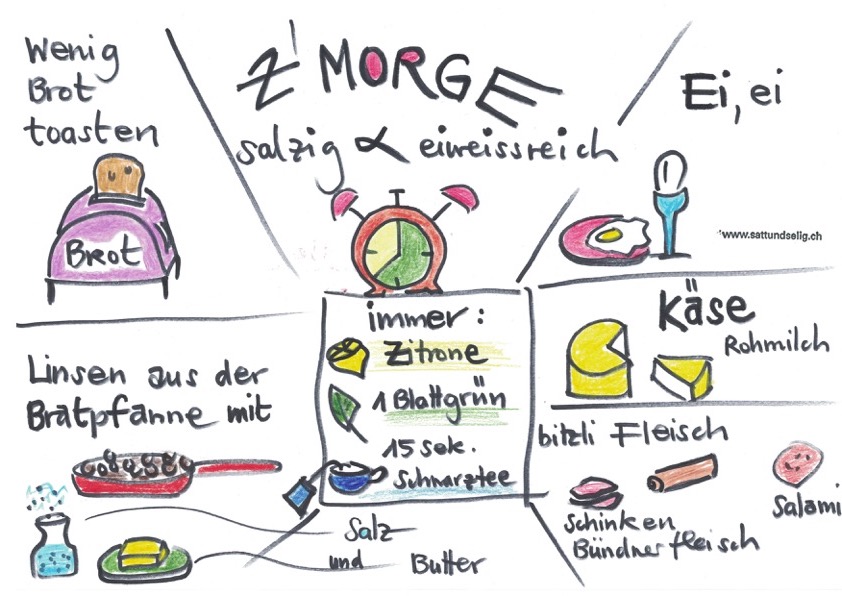 Z'MORGE
salzig & eiweissreich
Wenig
Brot
toasten
Brot
Ei, ei
www.sattundselig.ch
immer:
Zitrone
1 Blattgrün
15 sek.
Schwarztee
Käse
Rohmilch
Linsen aus der
Bratpfanne mit
Salz
und Butter
bitzli Fleisch
Schinken
Bündnerfleisch
Salami